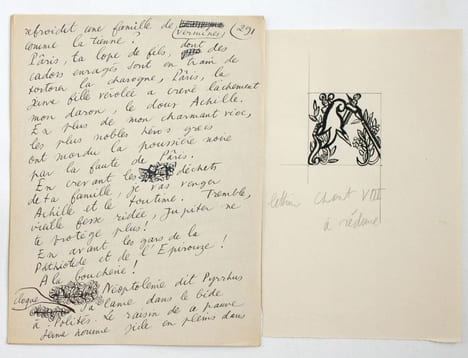 abroidit une famille de vermines, (291
comme la tienne ?
Pâris, ta lope de fils, dont des
cadors enragés sont en train de
tortorer la charogne, Pâris, la
jeune fille vérolée a crevé lâchement
mon daron, le doux Achille.
En plus de mon charmant vioc,
les plus nobles héros grecs
ont mordu la poussière noire
par la faute de Pâris.
En crevant les déchets
de ta famille, je vas venger
Achille et le toutime. Tremble,
vieille fesse ridée, Jupiter ne
te protège plus !
En avant les gars de la
Pathiotède et de l'Epirouze !
A la boucherie !
Néoptolème dit Pyrrhus
sa lame dans le bide
à Politès. Le raisin de ce pauvre
jeune homme gicle en pleins dans
Chant VIII
à réduire